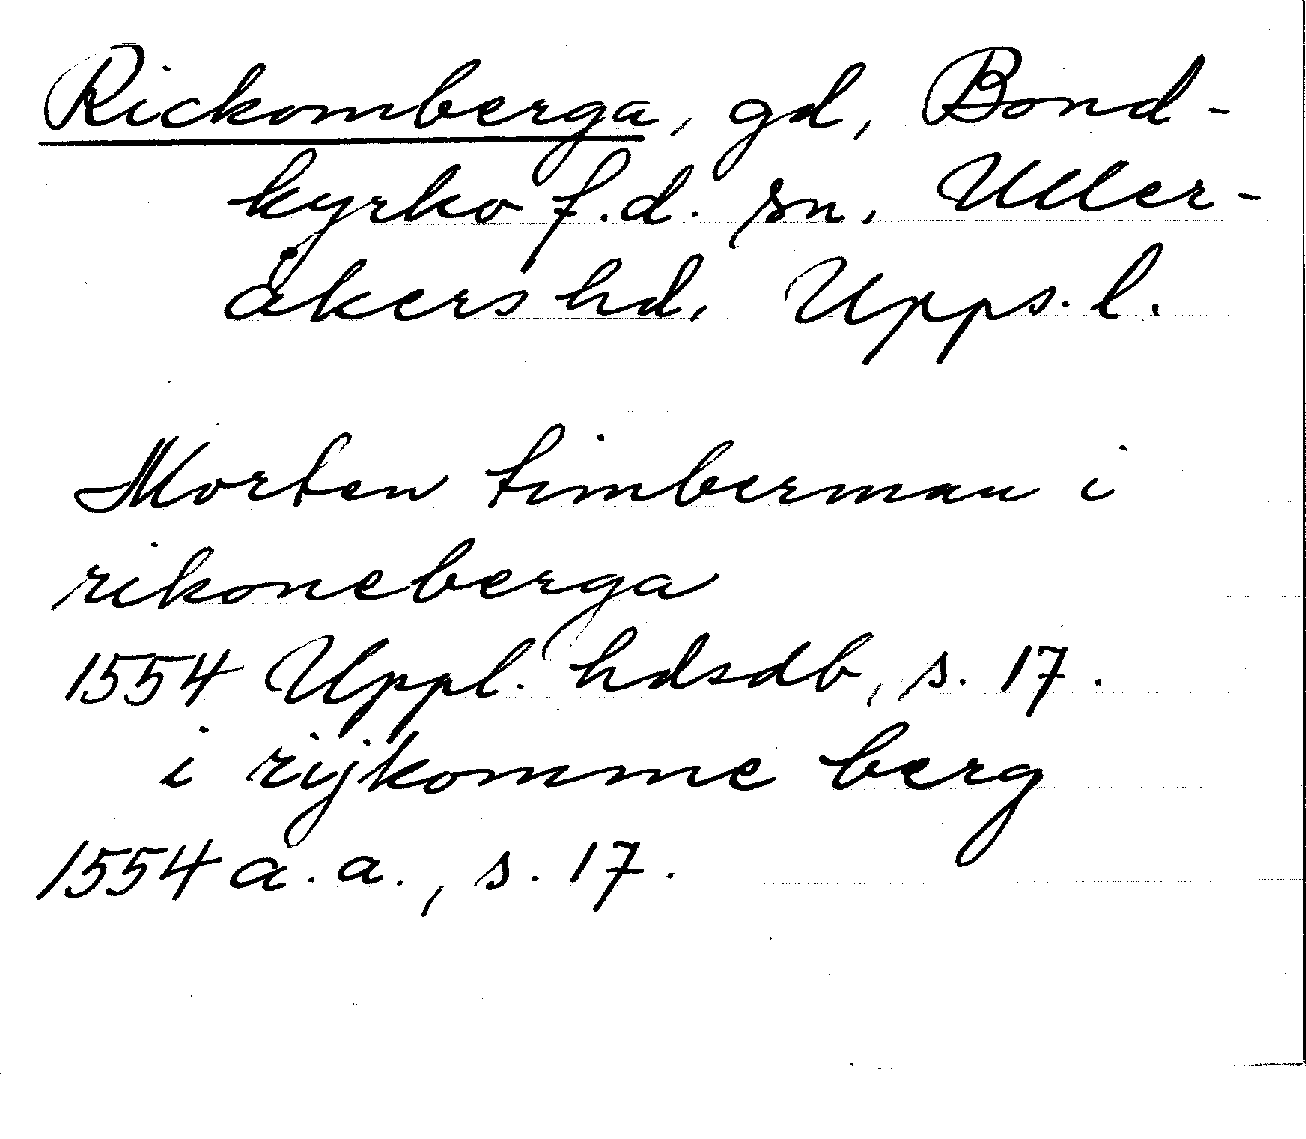 Rickomberga, gd, Bond-
kyrko f.d. sn, Uller-
åkers hd, Upps. l.
Morten timberman i
rikoneberga
1554 Uppl. hdsdb, s. 17.
i rijkomme berg
1554 a.a., s. 17.